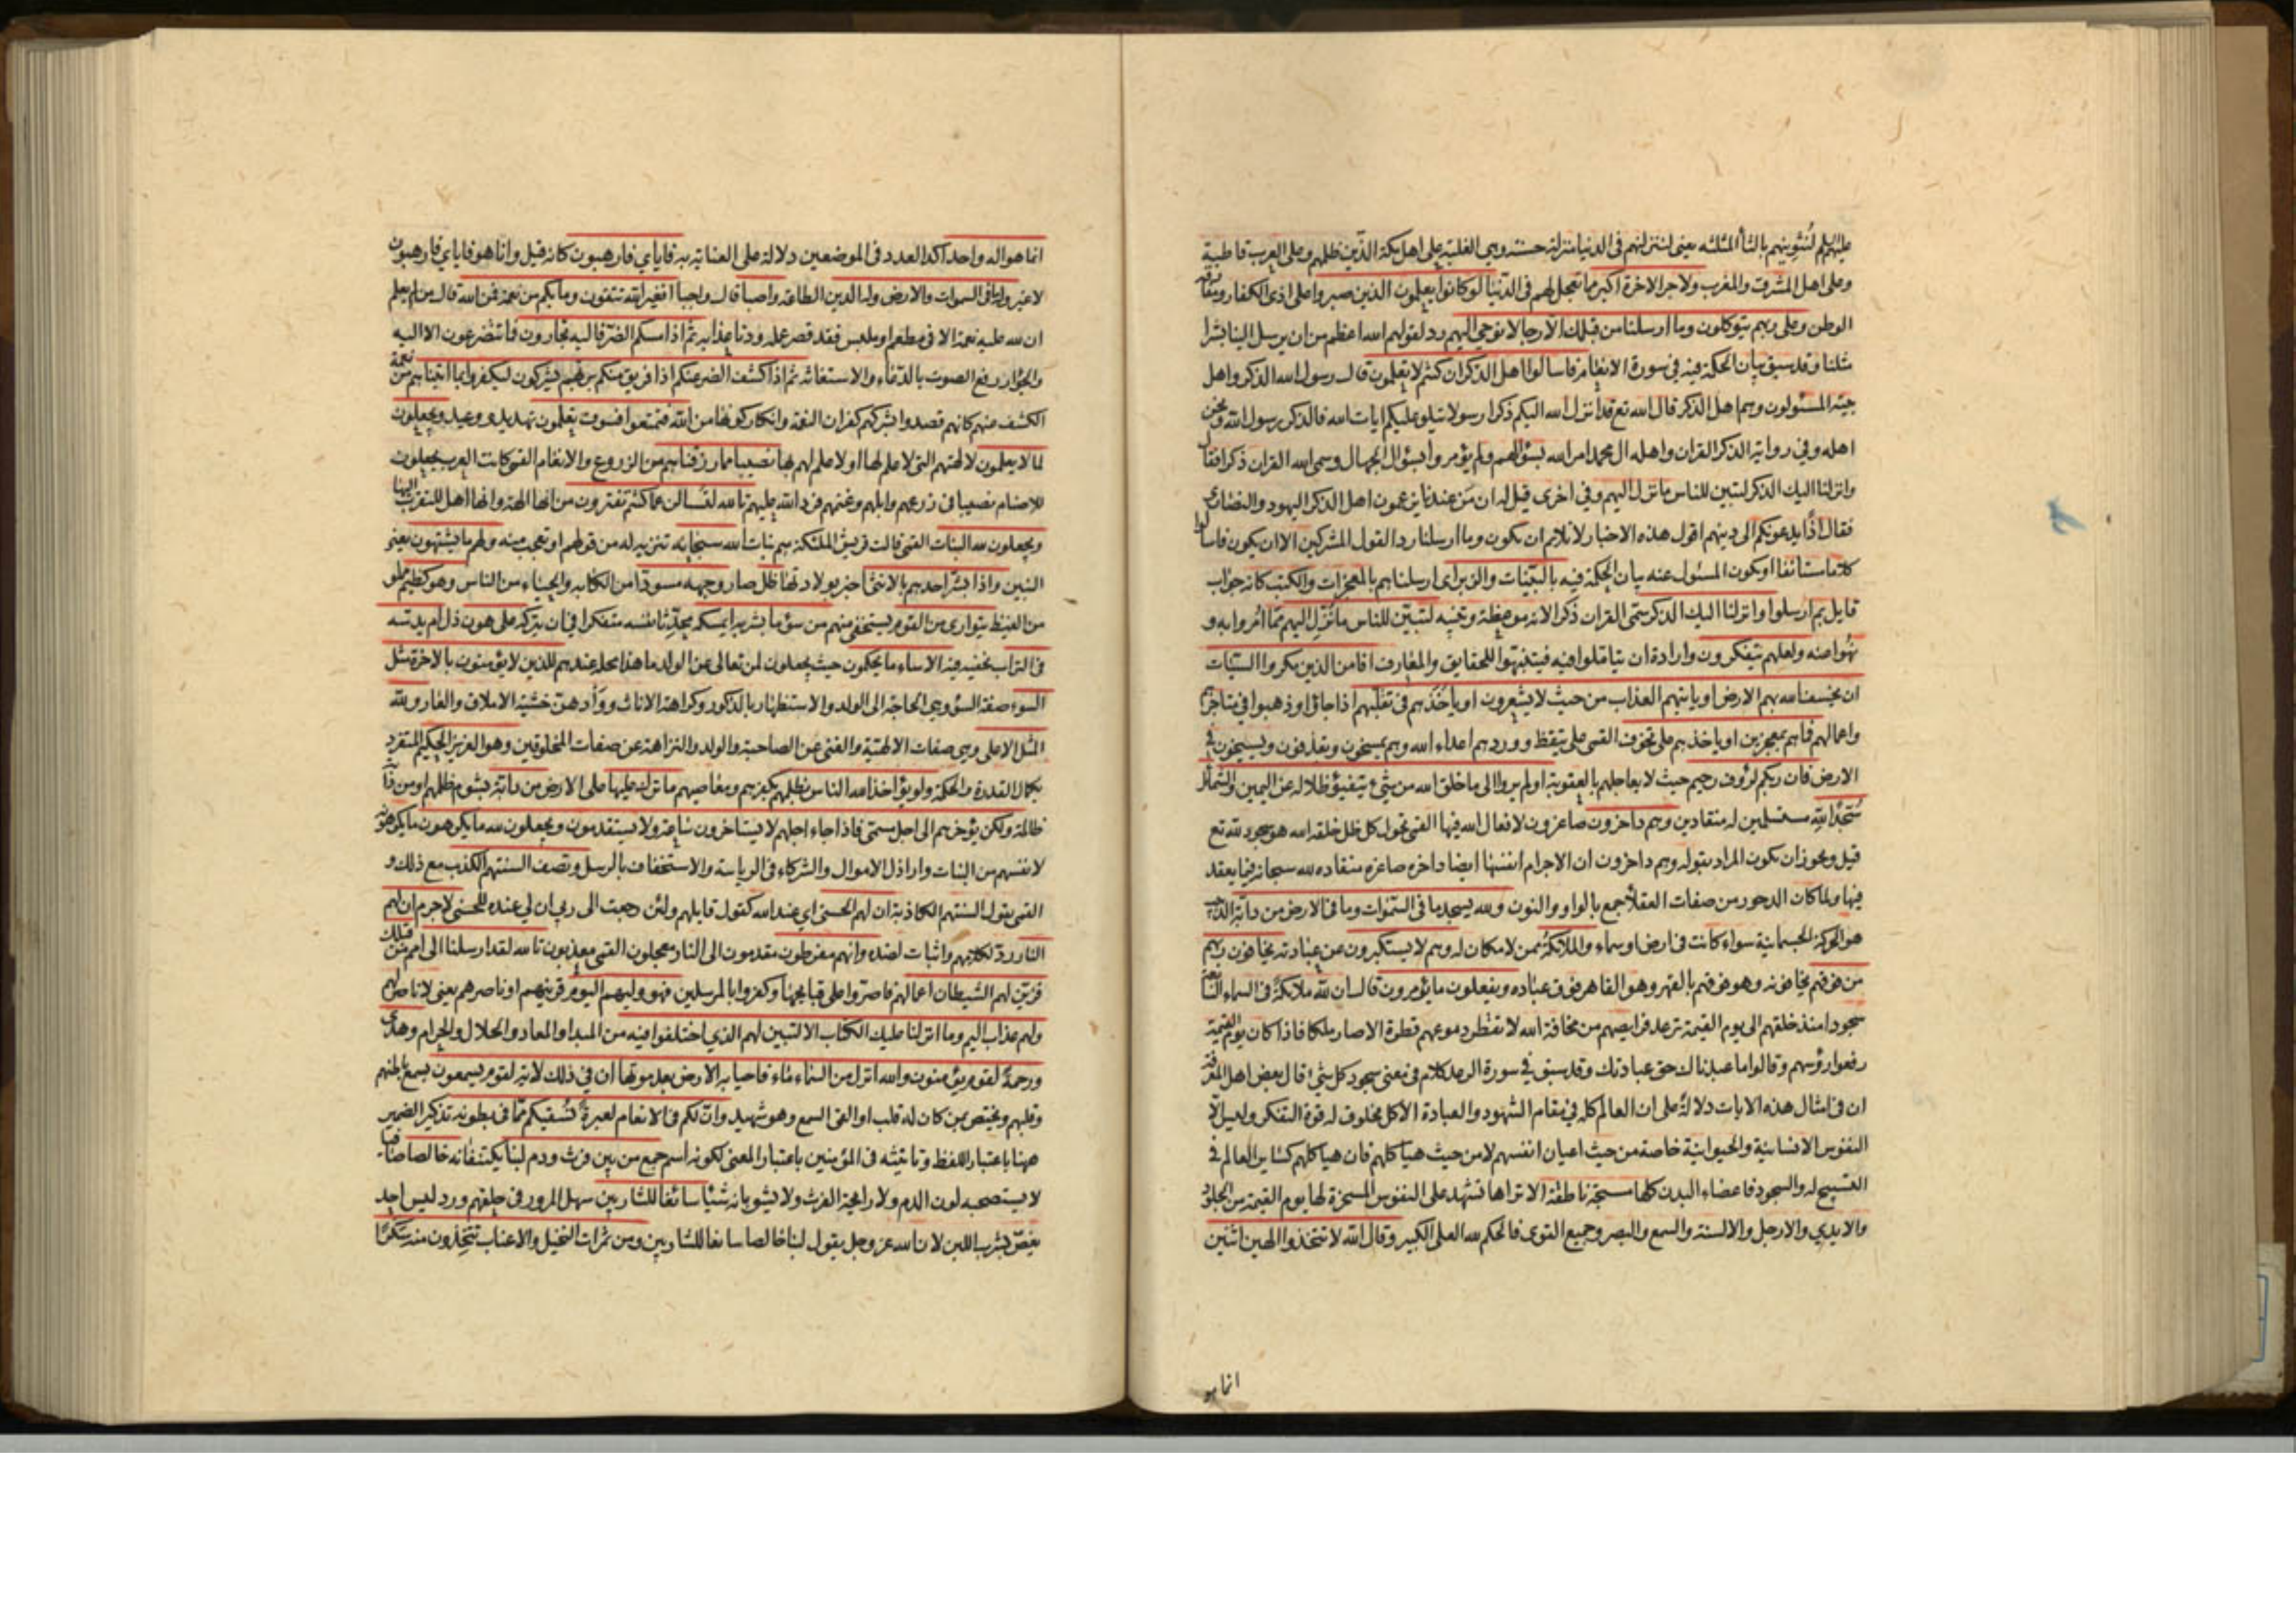 عليهم لنثوينهم بالثاء المثلثه يعني لننزلنهم في الدنيا منزلة حسنة وهي الغلبة على اهل مكة الذين ظلمهم وعلى العرب قاطبة
وعلى اهل المشرق والمغرب ولاجر الاخرة اكبر مما تعجل لهم في الدنيا لو كانوا يعلمون الذين صبروا على اذى الكفار ومفارقة
الوطن وعلى ربهم يتوكلون وما ارسلنا من قبلك الا رجالا نوحي اليهم رد لقولهم الله اعظم من ان يرسل الينا بشرا
مثلنا وقد سبق بيان الحكمة فيه في سورة الانعام فاسالوا اهل الذكر ان كنتم لا تعلمون قال رسول الله الذكر واهل
بيته المسئولون وهم اهل الذكر قال الله تع قد انزل الله اليكم ذكرا رسولا يتلو عليكم ايات الله فالذكر رسول الله ونحن
اهله وفي رواية الذكر القران واهله ال محمد امر الله بسؤالهم ولم يؤمروا بسؤال الجهال وسمى الله القران ذكرا فقال
وانزلنا اليك الذكر لتبين للناس ما نزل اليهم وفي اخرى قيل له ان من عندنا يزعمون اهل الذكر اليهود والنصارى
فقال اذا يدعونكم الى دينهم اقول هذه الاخبار لا تلايم ان يكون وما ارسلنا ردا لقول المشركين الا ان يكون فاسالوا
كلاما مستانفا او يكون المسئول عنه بيان الحكمة فيه بالبينات والزبر اى ارسلناهم بالمعجزات والكتب كانه جواب
قايل بم ارسلوا وانزلنا اليك الذكر سمى القران ذكرا لانه موعظة وتنبيه لتبين للناس ما نزل اليهم مما امروا به و
نهوا عنه ولعلهم يتفكرون وارادة ان يتاملوا فيه فيتنبهوا للحقايق والمعارف افامن الذين مكروا السيئات
ان يخسف الله بهم الارض او ياتيهم العذاب من حيث لا يشعرون او ياخذهم في تقلبهم اذا جاؤا وذهبوا في متاجرهم
واعمالهم فما هم بمعجزين او ياخذهم على تخوف القمى على تيقظ وورد هم اعداء الله وهم يمسخون ويقذفون ويسيخون في
الارض فان ربكم لرؤف رحيم حيث لا يعاجلهم بالعقوبة اولم يروا الى ما خلق الله من شيء يتفيؤ ظلاله عن اليمين والشمائل
سجدا لله مستسلمين له منقادين وهم داخرون صاغرون لافعال الله فيها القمى تحول كل ظل خلقه الله هو سجود لله تع
قيل ويجوز ان يكون المراد بقوله وهم داخرون ان الاجرام انفسها ايضا داخره صاغره منقاده لله سبحانه فيما يفعل
فيها ولما كان الدخور من صفات العقلاء جمع بالواو والنون ولله يسجد ما في السموات وما في الارض من دابة الدبيب
هو الحركة الجسمانية سواء كانت في ارض او سماء والملائكة ممن لا مكان له وهم لا يستكبرون عن عبادته يخافون ربهم
من فوقهم يخافونه وهو فوقهم بالقهر وهو القاهر فوق عباده ويفعلون ما يؤمرون قال ان لله ملائكة في السماء السابعة
سجودا منذ خلقهم الى يوم القيمة ترعد فرايصهم من مخافة الله لا تقطر دموعهم قطرة الا صار ملكا فاذا كان يوم القيمة
رفعوا رؤسهم وقالوا ما عبدناك حق عبادتك وقد سبق في سورة الرعد كلام في معنى سجود كل شيء قال بعض اهل المعرفة
ان في امثال هذه الايات دلالة على ان العالم كله في مقام الشهود والعبادة الا كل مخلوف له قوة التفكر وليس الا
النفوس الانسانية والحيوانية خاصة من حيث اعيان انفسهم لا من حيث هياكلهم فان هياكلهم كساير العالم في
التسبيح له والسجود فاعضاء البدن كلها مسبحة ناطقة الا تراها تشهد على النفوس المسخرة لها يوم القيمة من الجلود
والايدي والارجل والالسنة والسمع والبصر وجميع القوى فالحكم لله العلى الكبير وقال الله لا تتخذوا الهين اثنين
انما هو
انما هو اله واحد اكد العدد في الموضعين دلالة على العناية به فاياي فارهبون كانه قيل وانا هو فاياي فارهبون
لا غير وله ما في السموات والارض وله الدين الطاعة واصبا قال واجبا افغير الله تتقون وما بكم من نعمة فمن الله قال من لم يعلم
ان لله عليه نعمة الا في مطعم او ملبس فقد قصر عمله ودنا عذابه ثم اذا مسكم الضر فاليه تجارون فما تتضرعون الا اليه
والجؤار رفع الصوت بالدعاء والاستغاثة ثم اذا كشف الضر عنكم اذا فريق منكم بربهم يشركون ليكفروا بما اتيناهم من نعمة
الكشف عنهم كانهم قصدوا بشركهم كفران النعمة وانكار كونها من الله فتمتعوا فسوف تعلمون تهديد ووعيد ويجعلون
لما لا يعلمون لالهتهم التي لا علم لها او لا علم لهم بها نصيبا مما رزقناهم من الزروع والانعام القمى كانت العرب يجعلون
للاصنام نصيبا في زرعهم وابلهم وغنمهم فرد الله عليهم تالله لتسالن عما كنتم تفترون من انها الهة وانها اهل للتقرب اليها
ويجعلون لله البنات القمى قالت قريش الملئكة هم بنات الله سبحانه تنزيه له من قولهم او تعجب منه ولهم ما يشتهون يعني
البنين واذا بشر احدهم بالانثى اخبر بولادتها ظل صار وجهه مسودا من الكابه والحياء من الناس وهو كظيم مملو
من الغيظ يتوارى من القوم يستخفى منهم من سوء ما بشر به ايمسكه محدثا نفسه متفكرا في ان يتركه على هون ذل ام يدسه
في التراب يخفيه فيه الا ساء ما يحكمون حيث يجعلون لمن تعالى عن الولد ما هذا محله عندهم للذين لا يؤمنون بالاخرة مثل
السوء صفة السوء وهي الحاجة الى الولد والاستظهار بالذكور وكراهة الاناث ووأدهن خشية الاملاق والعار ولله
المثل الاعلى وهي صفات الالهية والغنى عن الصاحبة والولد والنزاهة عن صفات المخلوقين وهو العزيز الحكيم المتفرد
بكمال القدرة والحكمة ولو يؤاخذ الله الناس بظلمهم بكفرهم ومعاصيهم ما ترك عليها على الارض من دابة بشوم ظلمهم او من دابة
ظالمة ولكن يؤخرهم الى اجل مسمى فاذا جاء اجلهم لا يستاخرون ساعة ولا يستقدمون ويجعلون لله ما يكرهون ما يكرهونه
لانفسهم من البنات واراذل الاموال والشركاء في الرياسة والاستخفاف بالرسل وتصف السنتهم الكذب مع ذلك و
القمى يقول السنتهم الكاذبة ان لهم الحسنى اي عند الله كقول قايلهم ولئن رجعت الى ربي ان لي عنده للحسنى لا جرم ان لهم
النار رد لكلامهم واثبات لضده وانهم مفرطون مقدمون الى النار معجلون القمى معذبون تالله لقد ارسلنا الى امم من قبلك
فزين لهم الشيطان اعمالهم فاصروا على قبايحها وكفروا بالمرسلين فهو وليهم اليوم قرينهم او ناصرهم يعني لا ناصر لهم
ولهم عذاب اليم وما انزلنا عليك الكتاب الا لتبين لهم الذي اختلفوا فيه من المبدا والمعاد والحلال والحرام وهدى
ورحمة لقوم يؤمنون والله انزل من السماء ماء فاحيا به الارض بعد موتها ان في ذلك لاية لقوم يسمعون بسمع باطنهم
وقلبهم ويختص بمن كان له قلب او القى السمع وهو شهيد وان لكم في الانعام لعبرة نسقيكم مما في بطونه تذكير الضمير
ههنا باعتبار اللفظ وتانيثه في المؤمنين باعتبار المعنى لكونه اسم جمع من بين فرث ودم لبنا يكتنفانه خالصا صافيا
لا يستصحبه لون الدم ولا رايحة الفرث ولا يشوبانه شيئا سائغا للشاربين سهل المرور في حلقهم ورد ليس احد
يغص بشرب اللبن لان الله عز وجل يقول لبنا خالصا سائغا للشاربين ومن ثمرات النخيل والاعناب تتخذون منه سكرا